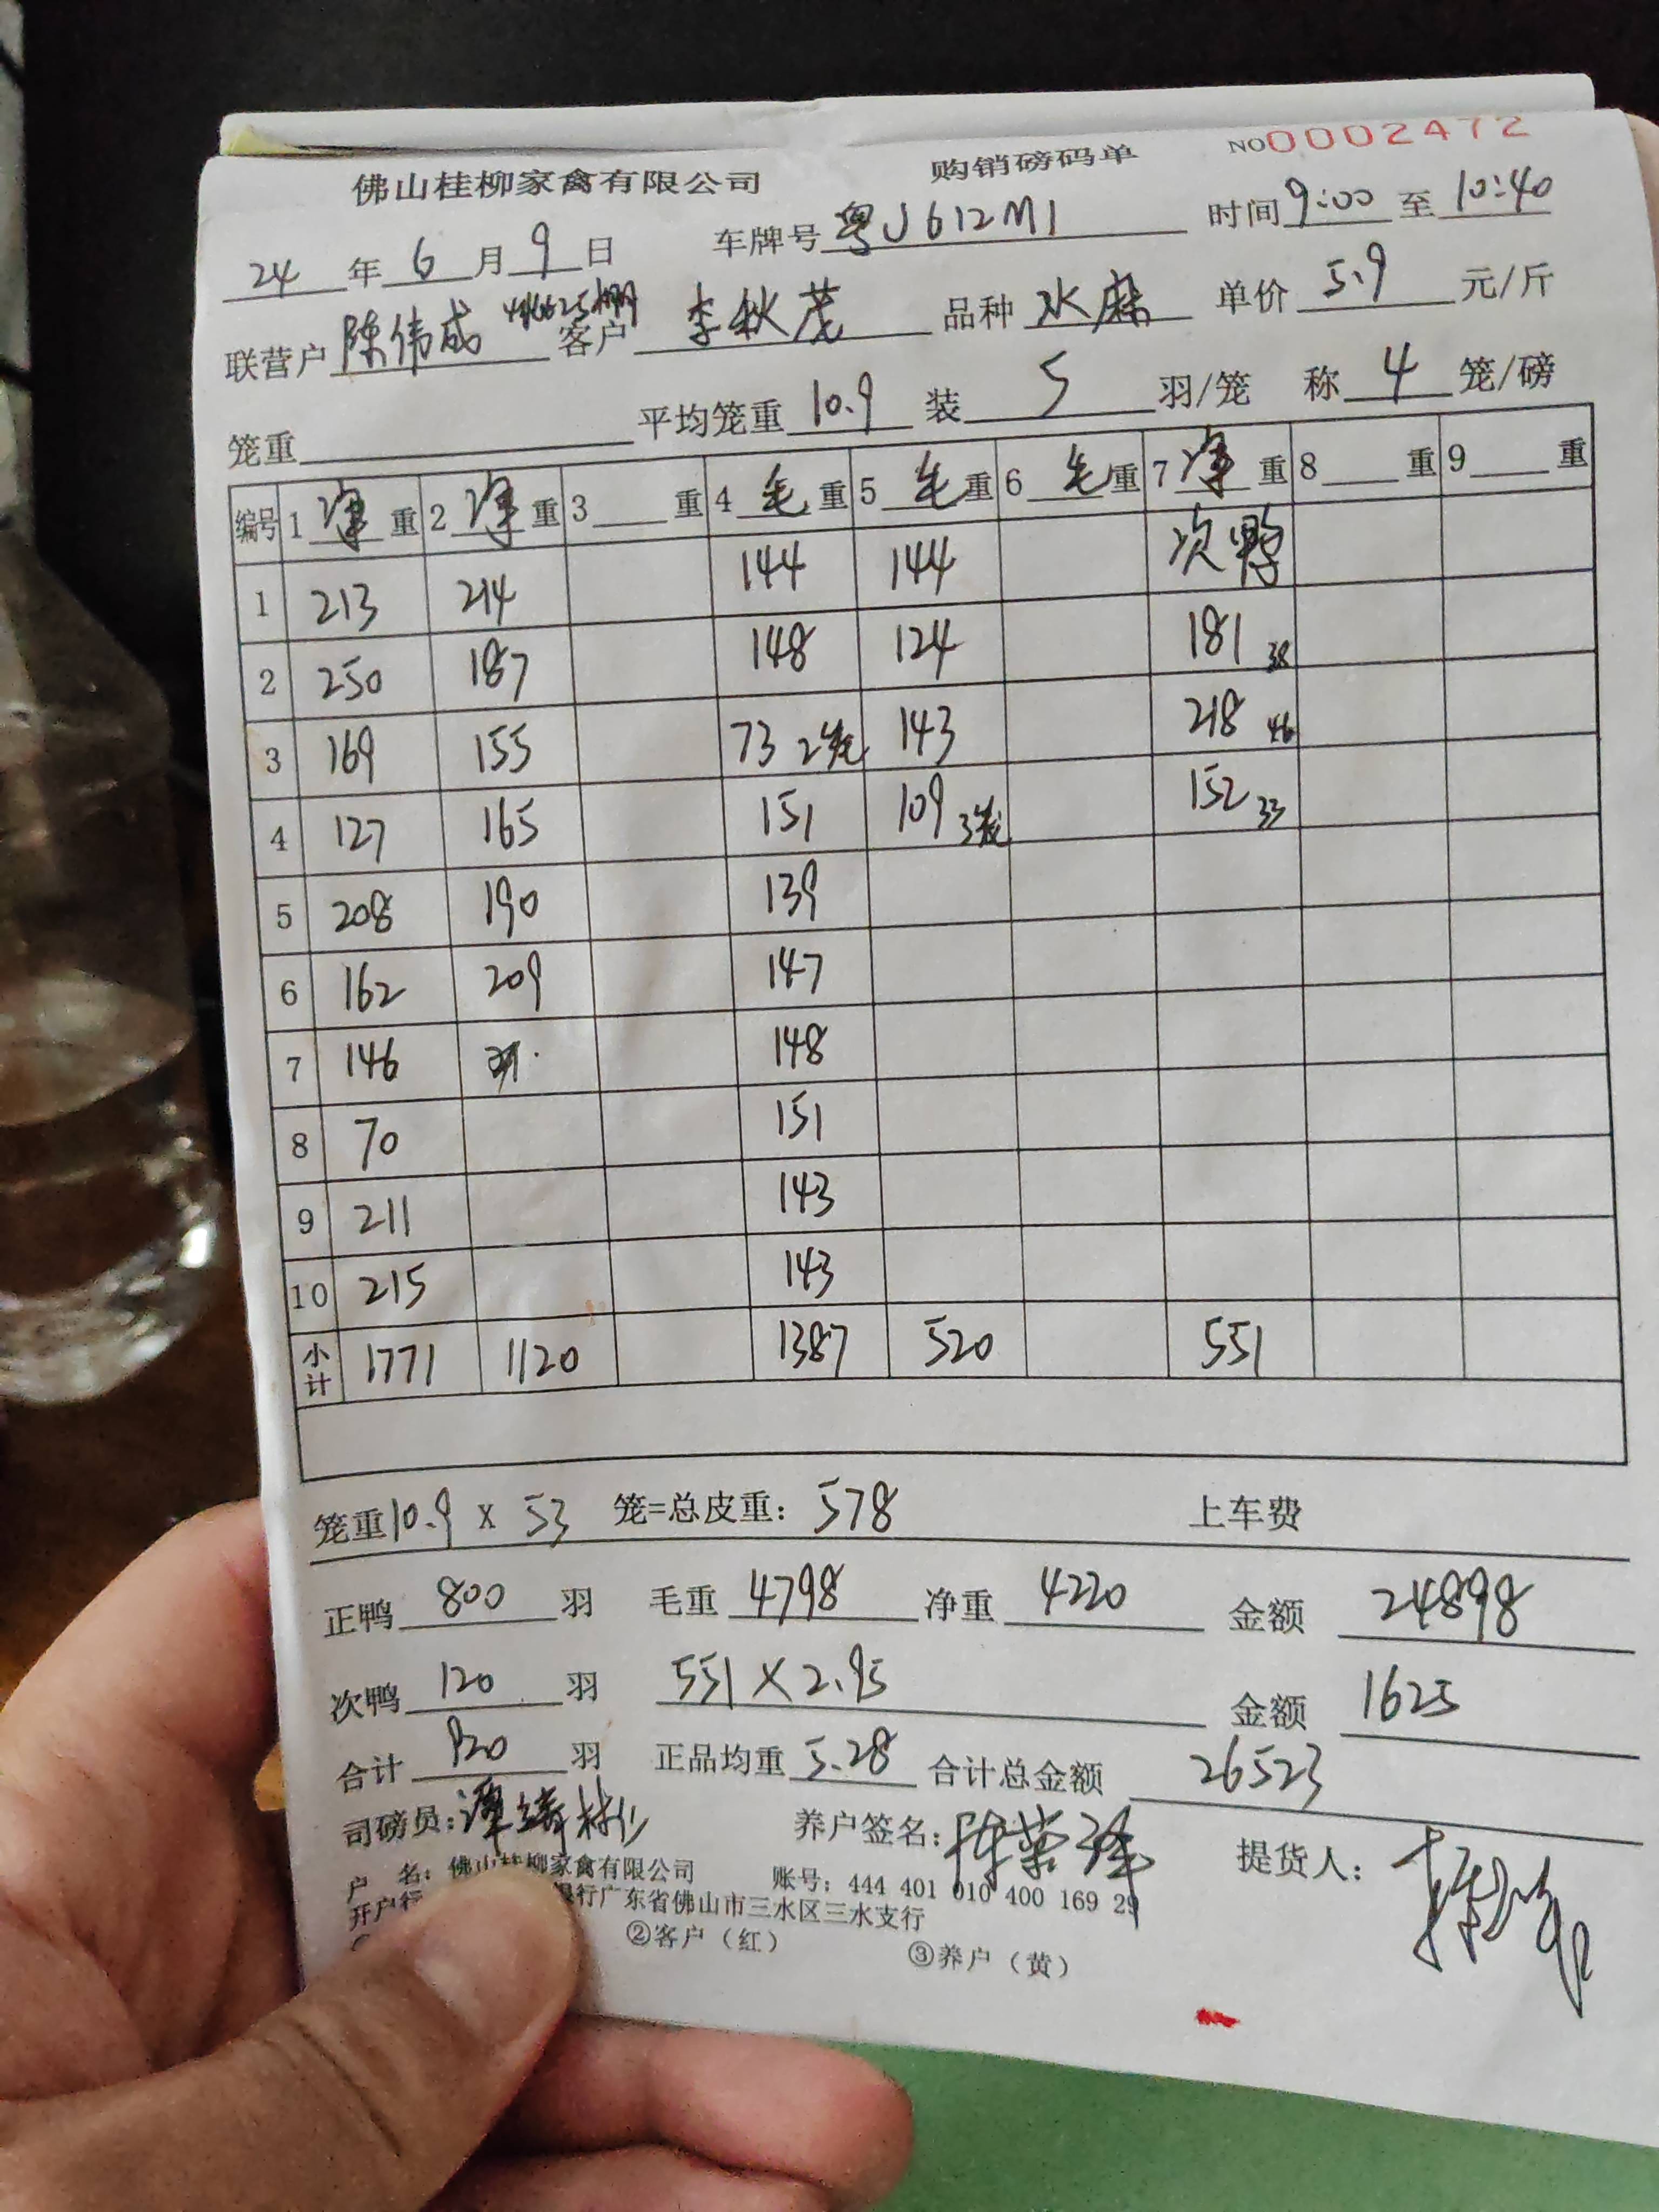 佛山桂柳家禽有限公司 购销磅码单 NO0002472
24年6月9日 车牌号粤J612M1 时间9:00至10:40
联营户陈伟成 客户李秋茂 品种水麻 单价5.9元/斤
笼重 平均笼重10.9 装5羽/笼 称4笼/磅
编号 1净重 2净重 3重 4毛重 5毛重 6毛重 7净重 8重 9重
1 213 214 144 144 次鸭
2 250 187 148 124 181 38
3 169 155 73 2笼 143 218 46
4 127 165 151 109 3笼 152 33
5 208 190 139
6 162 209 147
7 146 148
8 70 151
9 211 143
10 215 143
小计 1771 1120 1387 520 551
笼重10.9 X 53 笼=总皮重：578 上车费
正鸭800羽 毛重4798 净重4220 金额24898
次鸭120羽 551×2.95 金额1625
合计920羽 正品均重5.28 合计总金额26523
司磅员： 养户签名： 提货人：
户 名：佛山桂柳家禽有限公司 账号：444 401 010 400 169 29
开户行 银行广东省佛山市三水区三水支行
②客户（红） ③养户（黄）